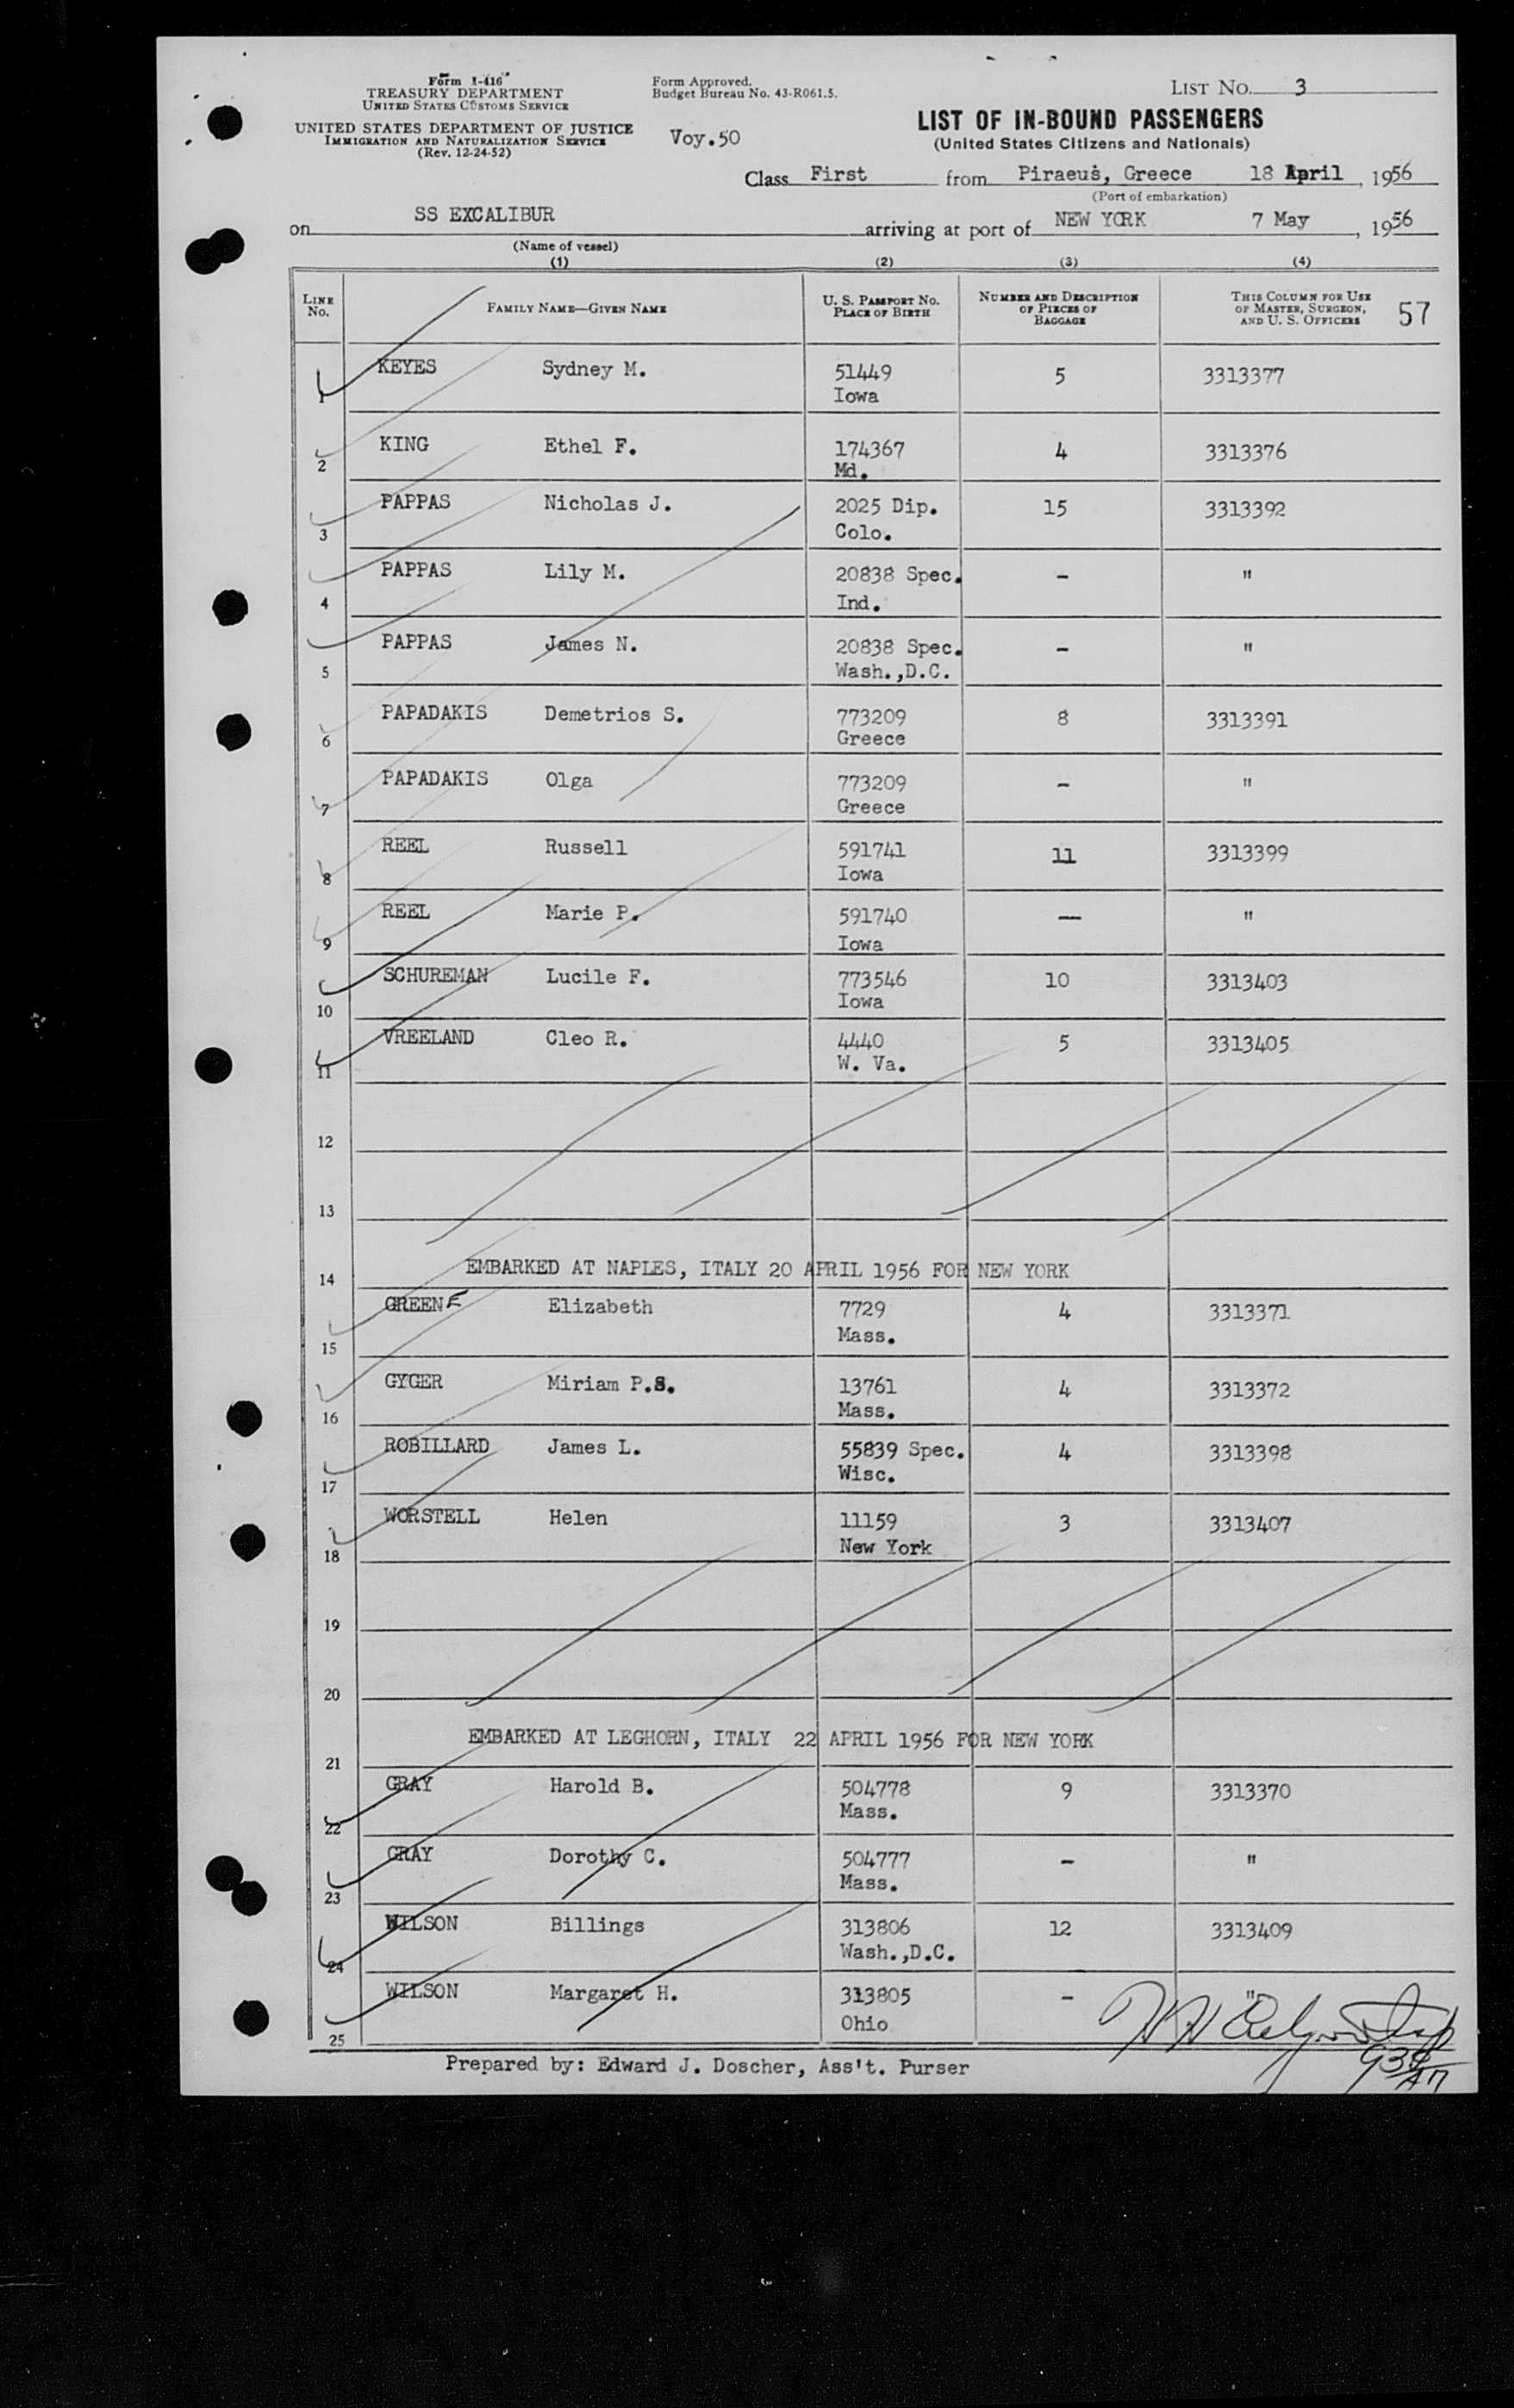 Form I-416
TREASURY DEPARTMENT
UNITED STATES CUSTOMS SERVICE
UNITED STATES DEPARTMENT OF JUSTICE
IMMIGRATION AND NATURALIZATION SERVICE
(Rev. 12-24-52)
Form Approved.
Budget Bureau No. 43-R061.5.
Voy.50
LIST NO. 3
LIST OF IN-BOUND PASSENGERS
(United States Citizens and Nationals)
Class First from Piraeus, Greece 18 April, 1956
(Port of embarkation)
on SS EXCALIBUR arriving at port of NEW YORK 7 May, 1956
(Name of vessel)
(1) (2) (3) (4)
LINE NO. FAMILY NAME—GIVEN NAME U. S. PASSPORT NO. PLACE OF BIRTH NUMBER AND DESCRIPTION OF PIECES OF BAGGAGE THIS COLUMN FOR USE OF MASTER, SURGEON, AND U. S. OFFICERS 57
1 KEYES Sydney M. 51449 5 3313377
Iowa
2 KING Ethel F. 174367 4 3313376
Md.
3 PAPPAS Nicholas J. 2025 Dip. 15 3313392
Colo.
4 PAPPAS Lily M. 20838 Spec. - "
Ind.
5 PAPPAS James N. 20838 Spec. - "
Wash.,D.C.
6 PAPADAKIS Demetrios S. 773209 8 3313391
Greece
7 PAPADAKIS Olga 773209 - "
Greece
8 REEL Russell 591741 11 3313399
Iowa
9 REEL Marie P. 591740 — "
Iowa
10 SCHUREMAN Lucile F. 773546 10 3313403
Iowa
11 VREELAND Cleo R. 4440 5 3313405
W. Va.
12
13
14 EMBARKED AT NAPLES, ITALY 20 APRIL 1956 FOR NEW YORK
15 GREENE Elizabeth 7729 4 3313371
Mass.
16 GYGER Miriam P.S. 13761 4 3313372
Mass.
17 ROBILLARD James L. 55839 Spec. 4 3313398
Wisc.
18 WORSTELL Helen 11159 3 3313407
New York
19
20
21 EMBARKED AT LEGHORN, ITALY 22 APRIL 1956 FOR NEW YORK
22 GRAY Harold B. 504778 9 3313370
Mass.
23 GRAY Dorothy C. 504777 - "
Mass.
24 WILSON Billings 313806 12 3313409
Wash.,D.C.
25 WILSON Margaret H. 313805 - "
Ohio
Prepared by: Edward J. Doscher, Ass't. Purser